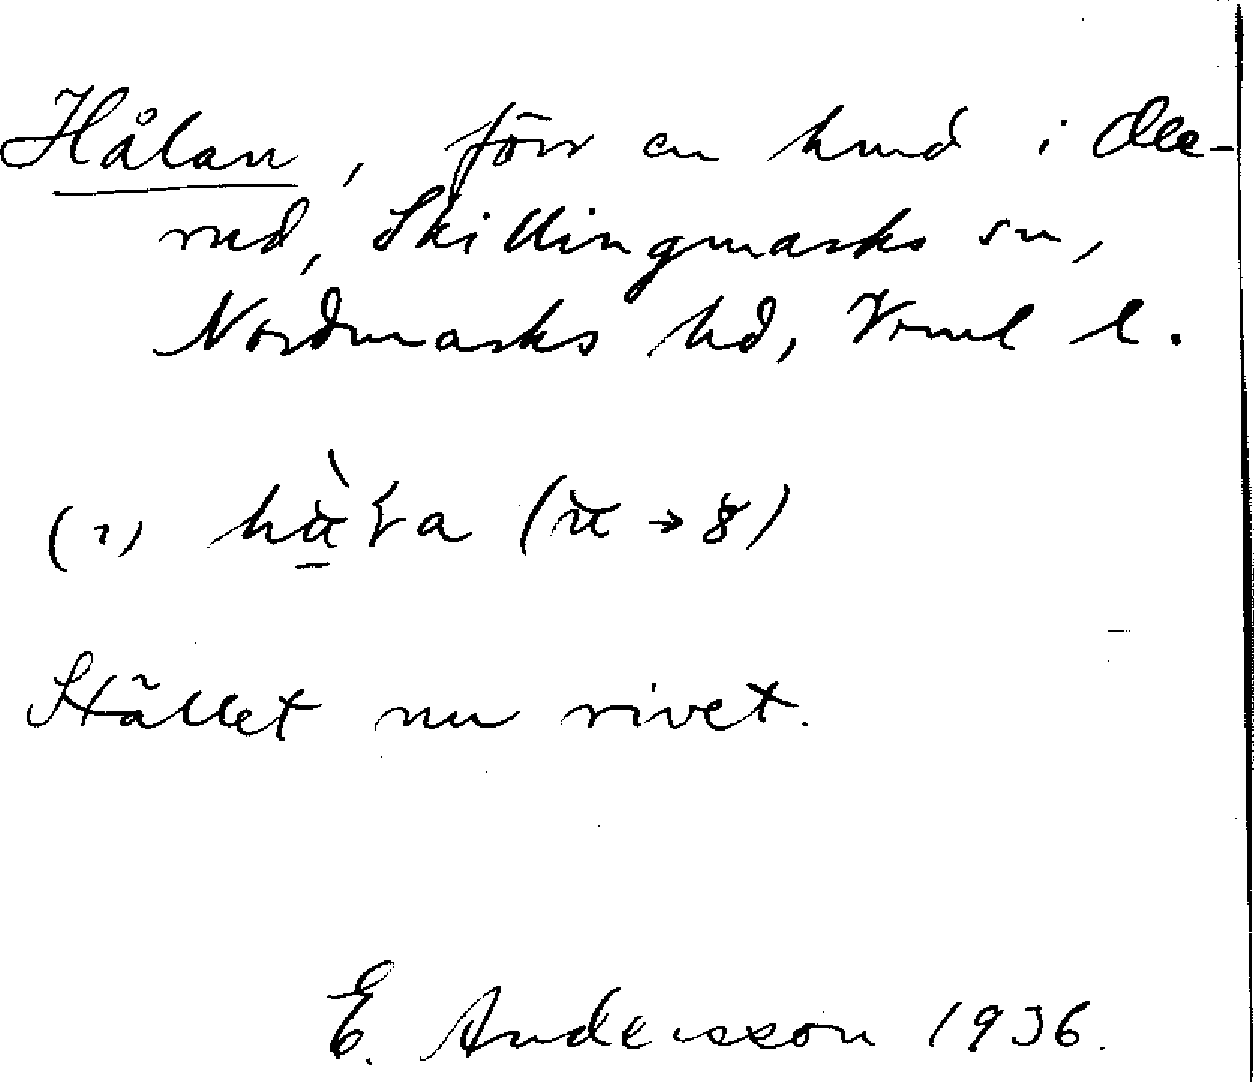 Hålan, förr en hmd i Ole-
rud, Skillingmarks sn,
Nordmarks hd, Vrml l.
(1)
Stället nu rivet.
E. Andersson 1936.